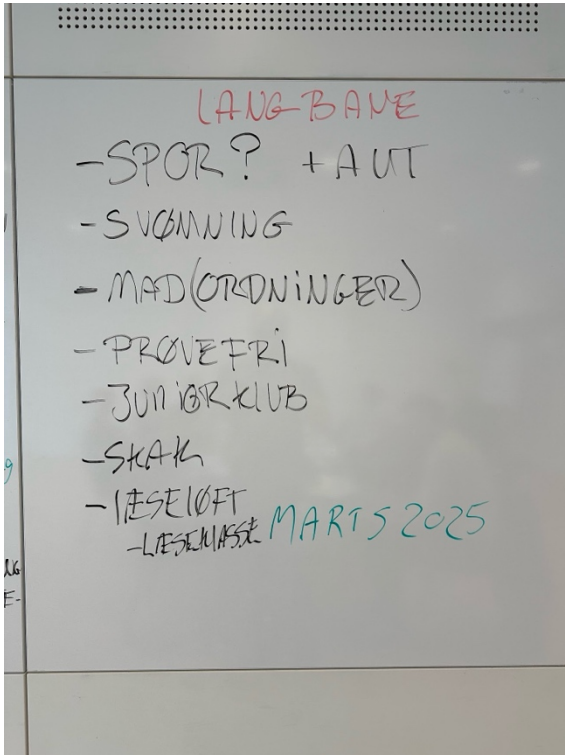 LANG-BANE
- SPOR? + AUT
- SVØMNING
- MAD(ORDNINGER)
- PRØVEFRI
- JUNIORKLUB
- SKAK
- LÆSELØFT
- LÆSEKLASSE MARTS 2025